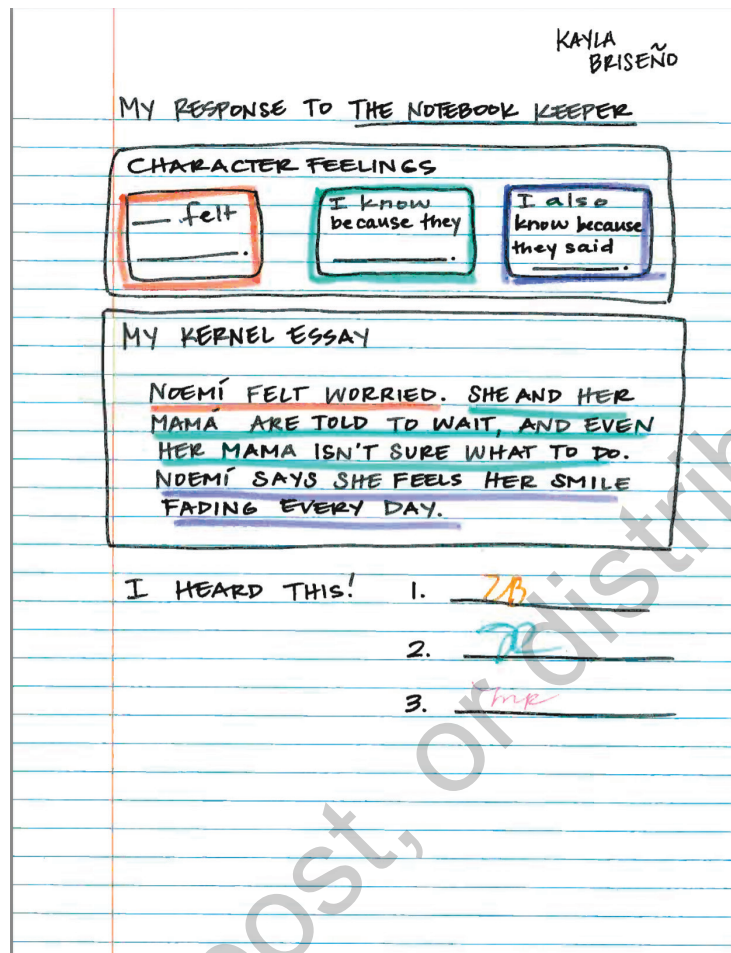 KAYLA
BRISEÑO
MY RESPONSE TO THE NOTEBOOK KEEPER
CHARACTER FEELINGS
___ felt
______.
I know
because they
______.
I also
know because
they said
______.
MY KERNEL ESSAY
NOEMÍ FELT WORRIED. SHE AND HER
MAMÁ ARE TOLD TO WAIT, AND EVEN
HER MAMA ISN'T SURE WHAT TO DO.
NOEMÍ SAYS SHE FEELS HER SMILE
FADING EVERY DAY.
I HEARD THIS! 1.
2.
3.
post, or distrib